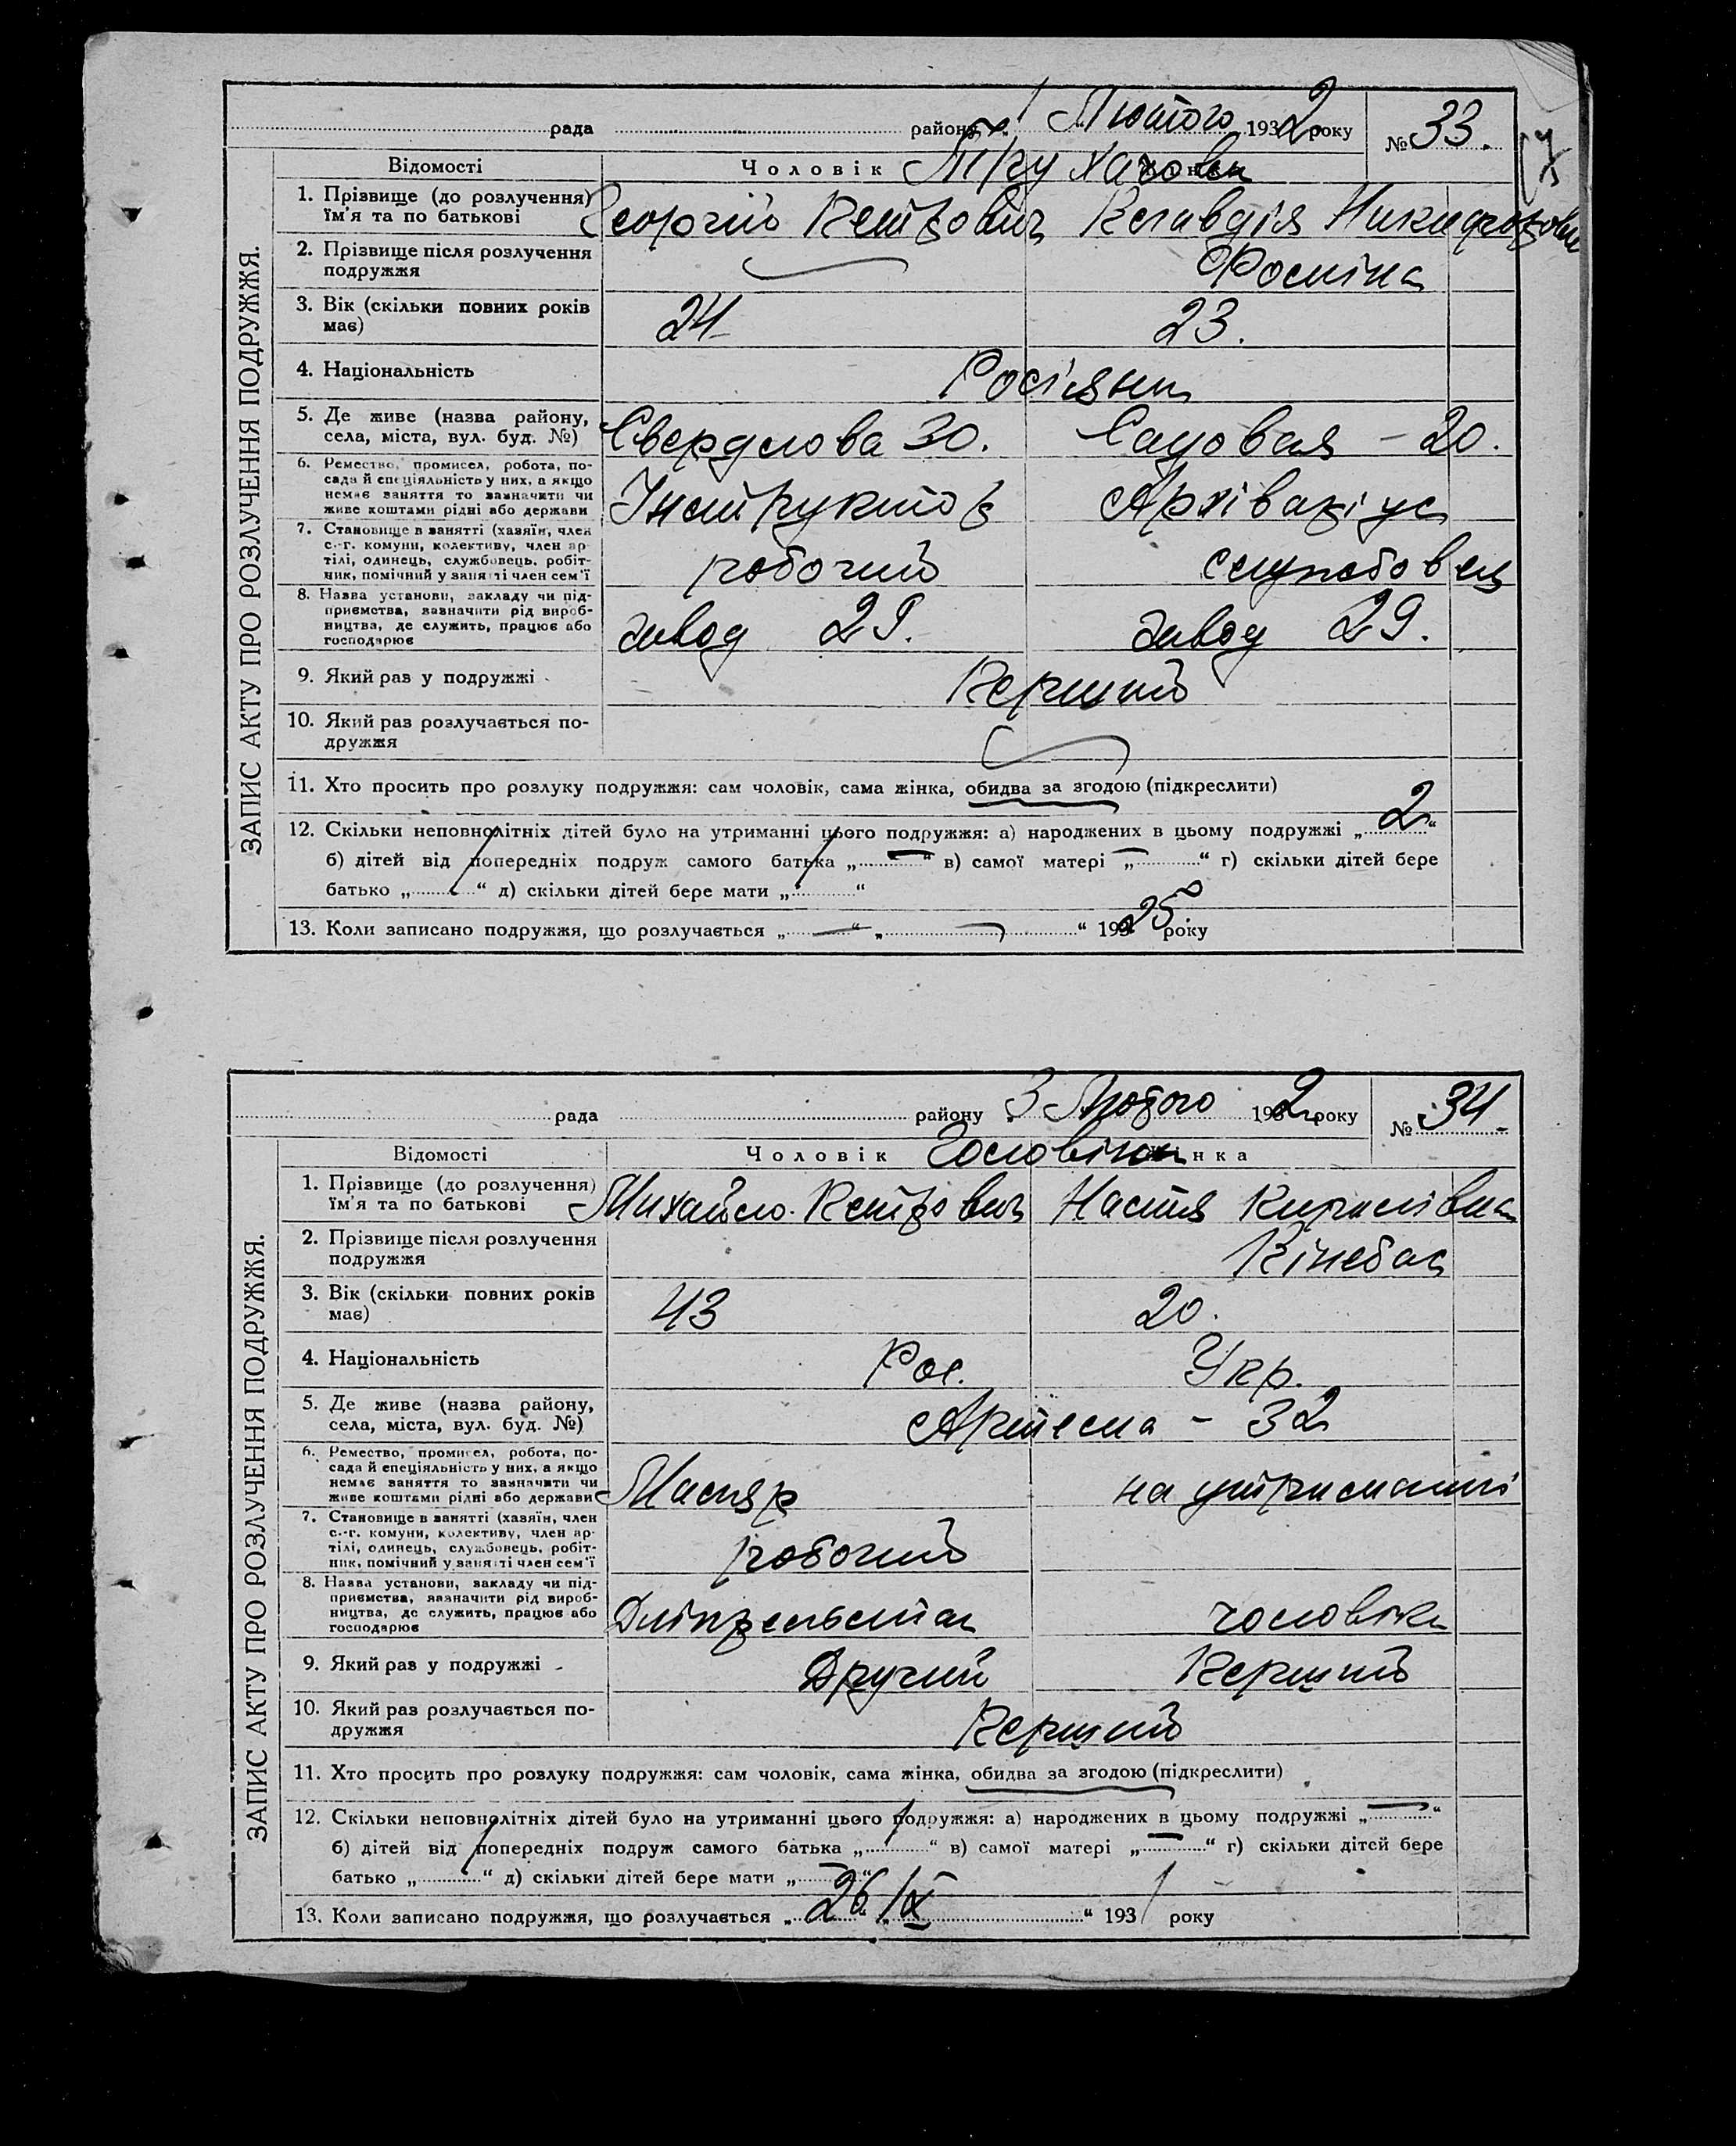 рада району 1 Лютого 1932 року № 33.
Відомості Чоловік Трухачови
17
ЗАПИС АКТУ ПРО РОЗЛУЧЕННЯ ПОДРУЖЖЯ.
1. Прізвище (до розлучення) Георгій Петрович Клавдія Никифоровн
їм'я та по батькові
2. Прізвище після розлучення
подружжя Фоміна
3. Вік (скільки повних років 24 23.
має)
4. Національність Росіяни
5. Де живе (назва району,
села, міста, вул. буд. №) Свердлова 30. Садовая - 20.
6. Ремество, промисел, робота, по-
сада й спеціяльність у них, а якщо
немає заняття то зазначити чи Інструктор Архіваріус
живе коштами рідні або держави
7. Становище в занятті (хазяїн, член
с.-г. комуни, колективу, член ар-
тілі, одинець, службовець, робіт- робочий службовец
ник, помічний у занятті член сем'ї
8. Назва установи, закладу чи під-
приємства, зазначити рід вироб-
ництва, де служить, працює або завод 29. завод 29.
господарює
9. Який раз у подружжі Перший
10. Який раз розлучається по-
дружжя
11. Хто просить про розлуку подружжя: сам чоловік, сама жінка, обидва за згодою (підкреслити)
12. Скільки неповнолітніх дітей було на утриманні цього подружжя: а) народжених в цьому подружжі „2“
б) дітей від попередніх подруж самого батька „—“ в) самої матері „—“ г) скільки дітей бере
батько „ “ д) скільки дітей бере мати „ “
13. Коли записано подружжя, що розлучається „—“ „—“ 1925 року
рада району 3 Лютого 1932 року № 34.
Відомості Чоловік Головіни Жінка
ЗАПИС АКТУ ПРО РОЗЛУЧЕННЯ ПОДРУЖЖЯ.
1. Прізвище (до розлучення) Михайло Петрович Настя Кирилівна
їм'я та по батькові
2. Прізвище після розлучення
подружжя
3. Вік (скільки повних років 43 20.
має)
4. Національність Рос. Укр.
5. Де живе (назва району,
села, міста, вул. буд. №) Артема - 32
6. Ремество, промисел, робота, по-
сада й спеціяльність у них, а якщо
немає заняття то зазначити чи Маляр на утриманні
живе коштами рідні або держави
7. Становище в занятті (хазяїн, член
с.-г. комуни, колективу, член ар-
тілі, одинець, службовець, робіт- робочий
ник, помічний у занятті член сем'ї
8. Назва установи, закладу чи під-
приємства, зазначити рід вироб-
ництва, де служить, працює або Дніпрельстан чоловіка
господарює
9. Який раз у подружжі Другий Перший
10. Який раз розлучається по-
дружжя Перший
11. Хто просить про розлуку подружжя: сам чоловік, сама жінка, обидва за згодою (підкреслити)
12. Скільки неповнолітніх дітей було на утриманні цього подружжя: а) народжених в цьому подружжі „—“
б) дітей від попередніх подруж самого батька „ “ в) самої матері „—“ г) скільки дітей бере
батько „ “ д) скільки дітей бере мати „—“
13. Коли записано подружжя, що розлучається „26“ „IX“ 1931 року